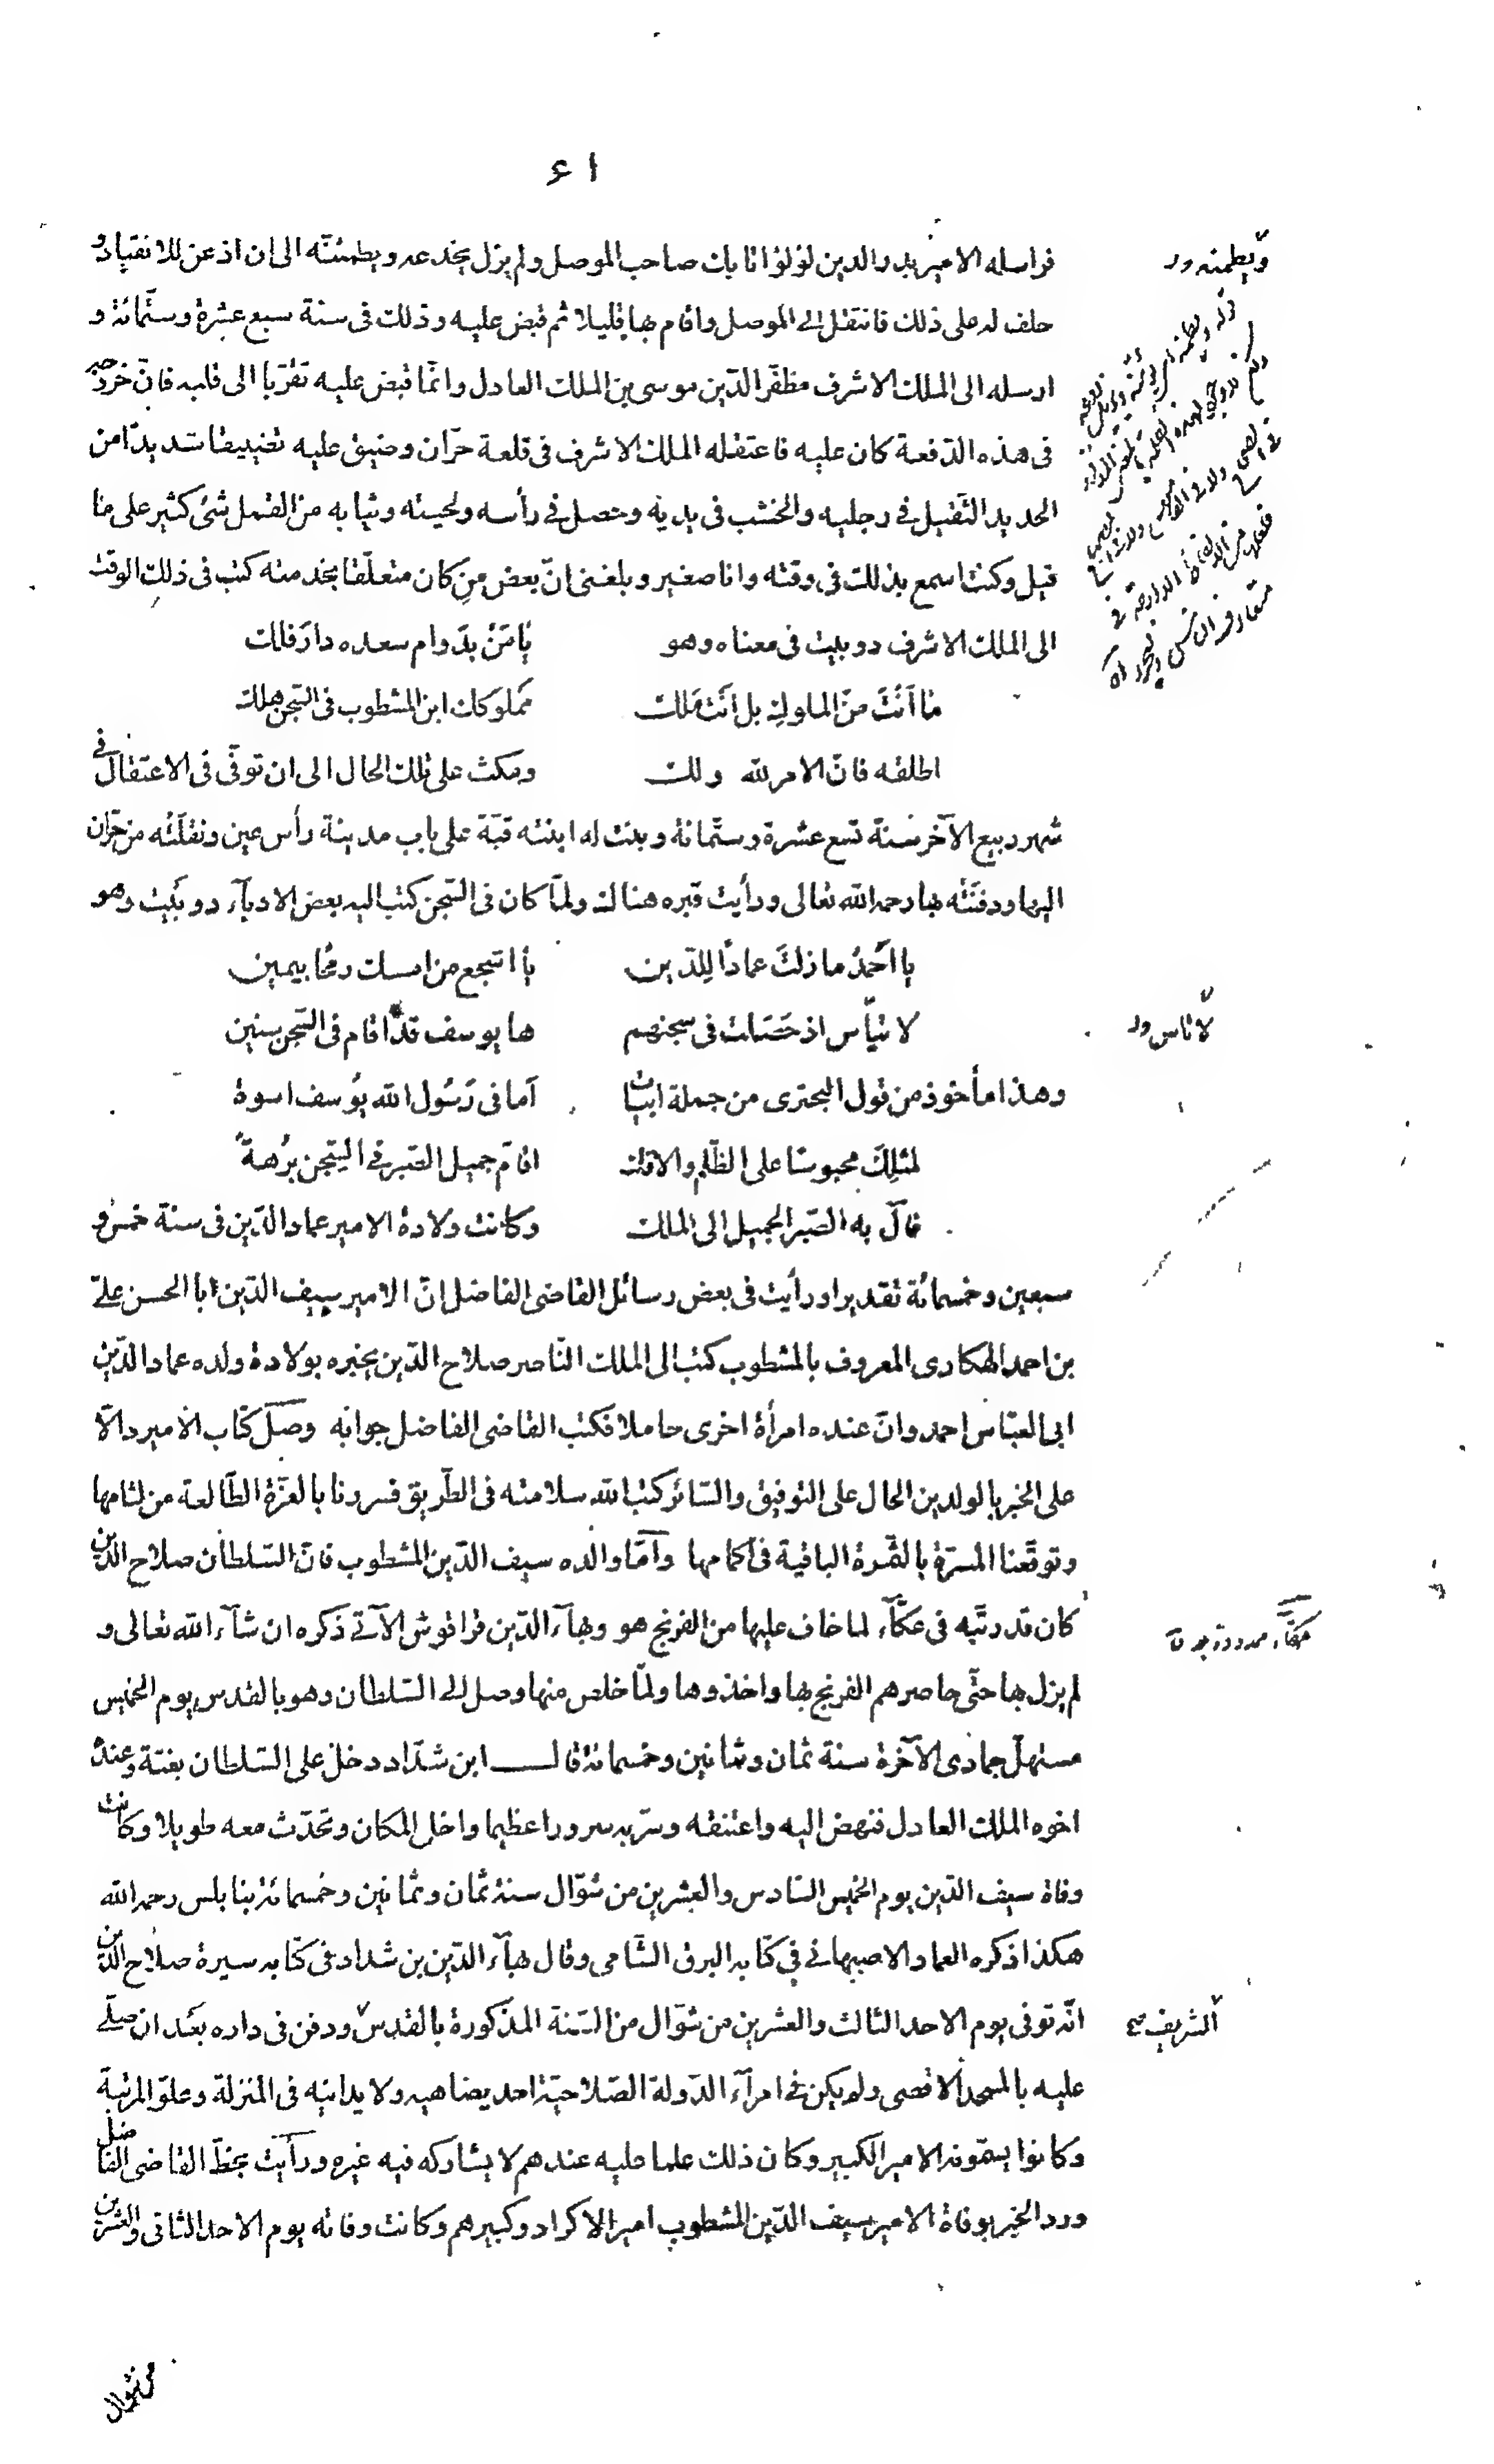 ٦١
فراسله الامير بدر الدين لؤلؤ اتابك صاحب الموصل ولم يزل يخدعه ويطمئنّه الى ان اذعن للانقياد و
حلف له على ذلك فانتقل الى الموصل واقام بها قليلا ثم قبض عليه وذلك فى سنة سبع عشرة وستّمائة و
ارسله الى الملك الاشرف مظفّر الدّين موسى بن الملك العادل وانّما قبض عليه تقرّبا الى قلبه فانّ خروجه
فى هذه الدّفعة كان عليه فاعتقله الملك الاشرف فى قلعة حرّان وضيق عليه تضييقا شديدا من
الحديد الثّقيل فى رجليه والخشب فى يديه وحصل فى رأسه ولحيته وثيابه من القمل شئ كثير على ما
قيل وكنت اسمع بذلك فى وقته وانا صغير وبلغنى انّ بعض من كان متعلّقا بخدمته كتب فى ذلك الوقت
الى الملك الاشرف دوبيت فى معناه وهو يا مَنْ بدَوام سعده دارَ فلك
ما أنْتَ منَ الملوك بل أنْت مَلك مملوكك ابن المشطوب فى السّجن هلك
اطلقه فانّ الامر لله ولك ومكث على تلك الحال الى ان توفّى فى الاعتقال فى
شهر ربيع الآخر سنة تسع عشرة وستّمائة وبنت له ابنته قبّة على باب مدينة رأس عين ونقلَتْه من حرّان
اليها ودفنَتْه بها رحمه الله تعالى ورأيت قبره هناك ولمّا كان فى السّجن كتب اليه بعض الادبآء دوبيت وهو
يا احْمَدُ ما زلتَ عمادًا لِلدّين يا اشجع من امسك رمحًا بيمين
لا تيأس اذ حَصَلت فى سجنهم ها يوسف قد اقام فى السّجن سنين
وهذا مأخوذ من قول البحترى من جملة ابيات أما فى رَسُول الله يُوسف اسوة
لمثلِكَ محبوسًا على الظلم والافك اقامَ جميل الصّبر فى السّجن بُرْهةً
فآلَ به الصّبر الجميل الى الملك وكانت ولادة الامير عماد الدّين فى سنة خمس و
سبعين وخمسمائة تقديرا ورأيت فى بعض رسائل القاضى الفاضل انّ الامير سيف الدّين ابا الحسن علىّ
بن احمد الهكارى المعروف بالمشطوب كتب الى الملك النّاصر صلاح الدّين يخبره بولادة ولده عماد الدّين
ابى العبّاس احمد وانّ عنده امرأة اخرى حاملا فكتب القاضى الفاضل جوابه وصل كتاب الامير دالّا
على الخبر بالولدين الحال على التوفيق والسّائر كتب الله سلامته فى الطّريق فسررنا بالغرّة الطّالعة من لثامها
وتوقّعنا المسرّة بالثّمرة الباقية فى اكمامها وأمّا والده سيف الدّين المشطوب فانّ السّلطان صلاح الدّين
كان قد رتّبه فى عكّآء لما خاف عليها من الفرنج هو وبهآء الدّين قراقوش الآتى ذكره ان شآء الله تعالى و
لم يزل بها حتّى حاصرهم الفرنج بها واخذوها ولمّا خلص منها وصل الى السّلطان وهو بالقدس يوم الخميس
مستهلّ جمادى الآخرة سنة ثمان وثمانين وخمسمائة قال ابن شدّاد دخل على السّلطان بغتة وعنده
اخوه الملك العادل فنهض اليه واعتنقه وسرّ به سرورا عظيما واخلى المكان وتحدّث معه طويلا وكانت
وفاة سيف الدّين يوم الخميس السّادس والعشرين من شوّال سنة ثمان وثمانين وخمسمائة بنابلس رحمه الله
هكذا ذكره العماد الاصبهانى فى كتابه البرق الشّامى وقال بهآء الدّين بن شداد فى كتابه سيرة صلاح الدّين
انّه توفى يوم الاحد الثالث والعشرين من شوّال من السّنة المذكورة بالقدس ودفن فى داره بعد ان صلّى
عليه بالمسجد الاقصى ولم يكن فى امرآء الدّولة الصّلاحيّة احد يضاهيه ولا يدانيه فى المنزلة وعلوّ المرتبة
وكانوا يسمّونه الامير الكبير وكان ذلك علما عليه عندهم لا يشاركه فيه غيره ورأيت بخطّ القاضى الفاضل
ورد الخبر بوفاة الامير سيف الدّين المشطوب امير الاكراد وكبيرهم وكانت وفاته يوم الاحد الثانى والعشرين
من شوال
ويطمنه ور
لا تاس ور
عكاء ممدودة
الشريف صح